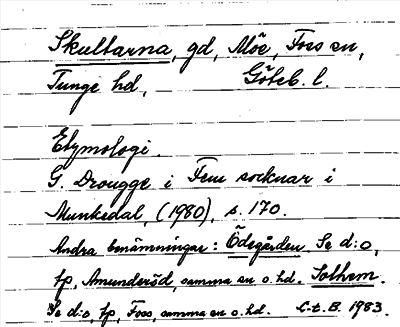 Skultarna, gd, Möe, Foss sn,
Tunge hd, Göteb. l.
Etymologi.
G. Drougge i Fem socknar i
Munkedal, (1980), s. 170.
Andra benämningar: Ödegården. Se d:o,
tp, Amunderöd, samma sn o. hd. Solhem.
Se d:o, tp, Foss, samma sn o. hd. L.t. B. 1983.